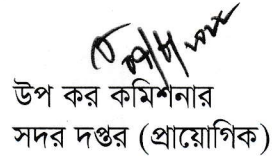 উপ কর কমিশনার
সদর দপ্তর (প্রায়োগিক)